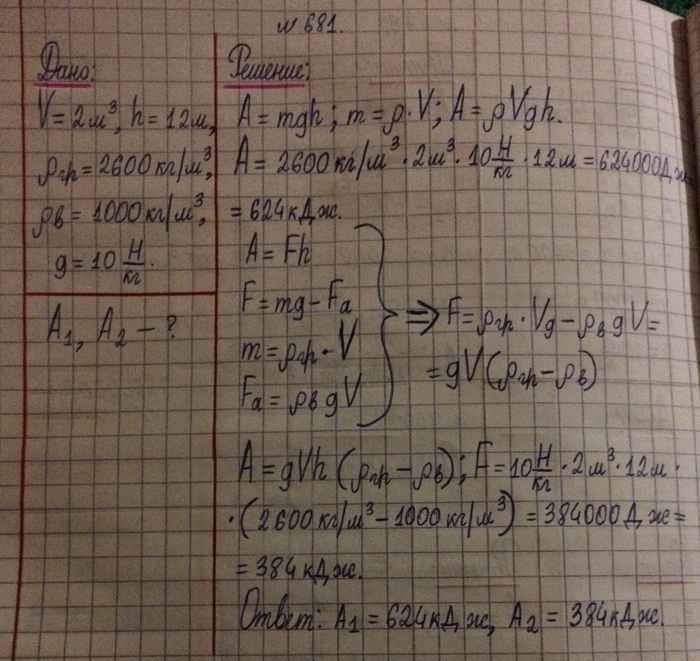 № 681.
Дано:
V = 2 м³, h = 12 м,
ρгр = 2600 кг/м³,
ρв = 1000 кг/м³,
g = 10 Н/кг.
A₁, A₂ – ?
Решение:
A = mgh; m = ρ · V; A = ρVgh.
A = 2600 кг/м³ · 2 м³ · 10 Н/кг · 12 м = 624000 Дж
= 624 кДж.
A = Fh
F = mg – Fa
m = ρгр · V
Fa = ρв gV
⇒ F = ρгр · Vg – ρв gV =
= gV (ρгр – ρв)
A = gVh (ρгр – ρв); F = 10 Н/кг · 2 м³ · 12 м ·
· (2600 кг/м³ – 1000 кг/м³) = 384000 Дж =
= 384 кДж.
Ответ: A₁ = 624 кДж, A₂ = 384 кДж.